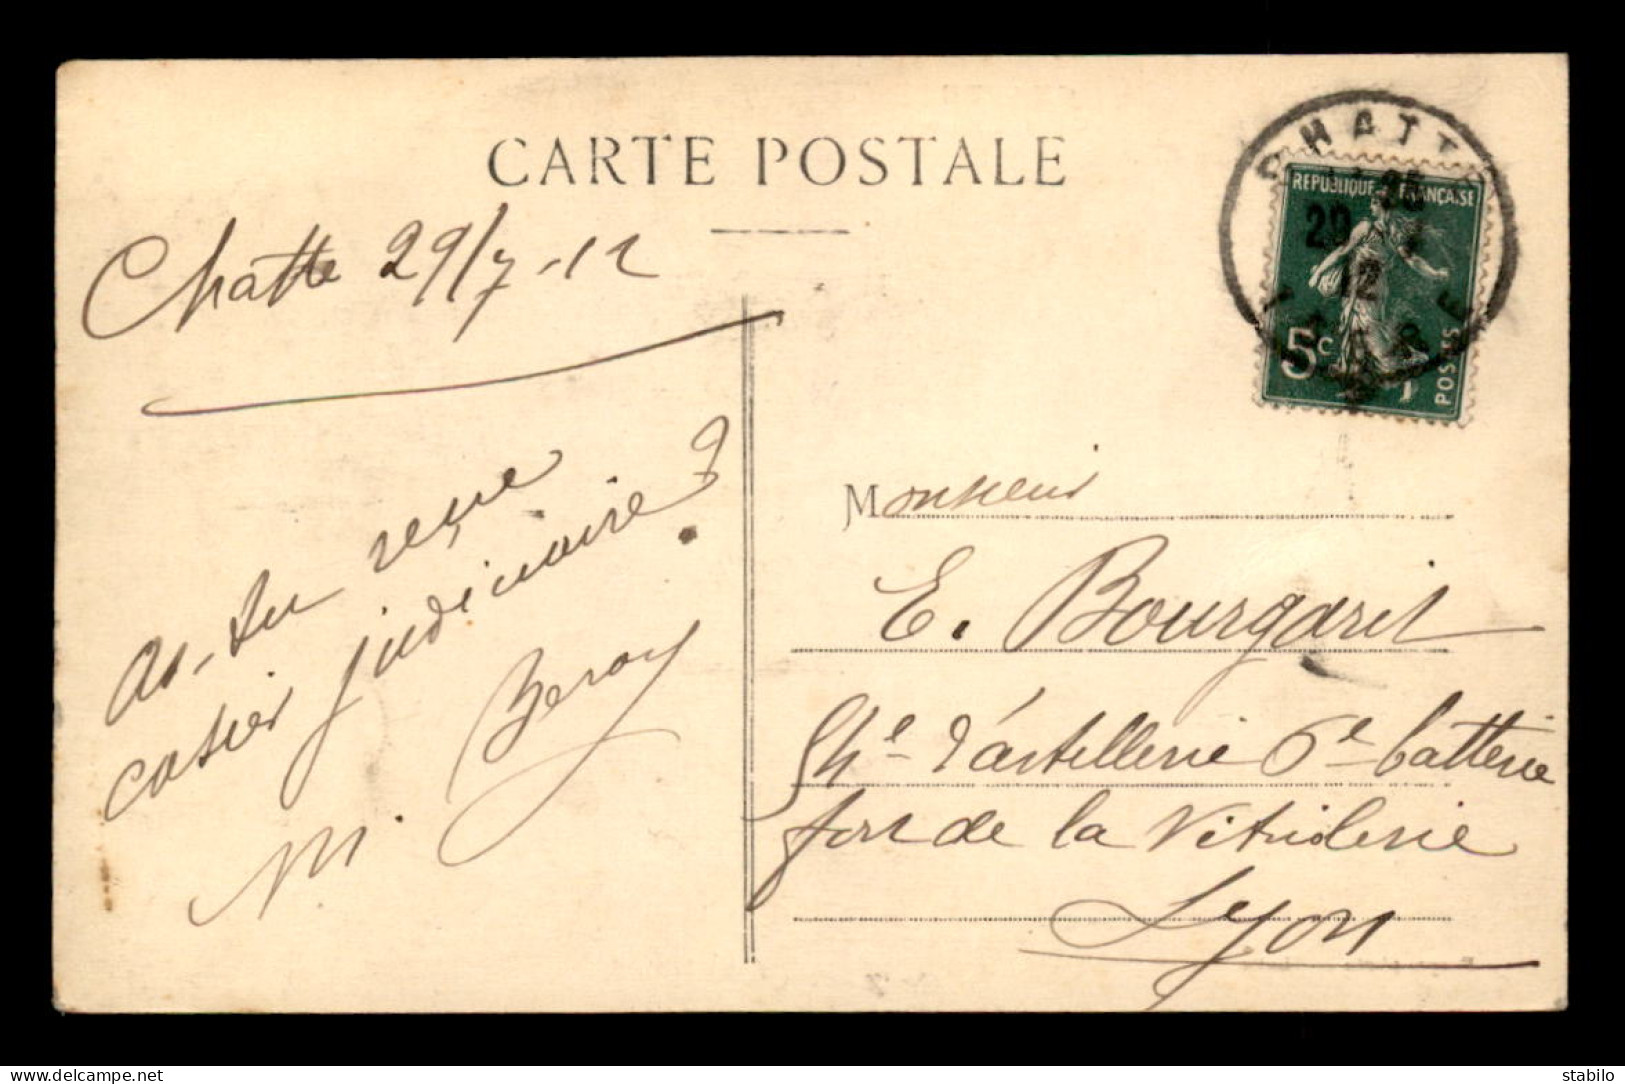 CARTE POSTALE
Chatte 29/7-12
As-tu reçue
casier judicuaire ?
M. Beroy
CHATTE
ISERE
29 12
REPUBLIQUE FRANÇAISE
5c
POSTES
Monsieur
E. Bourgarit
d'artillerie 6e batterie
fort de la Vitriolerie
Lyon
delcampe.net
stabilo